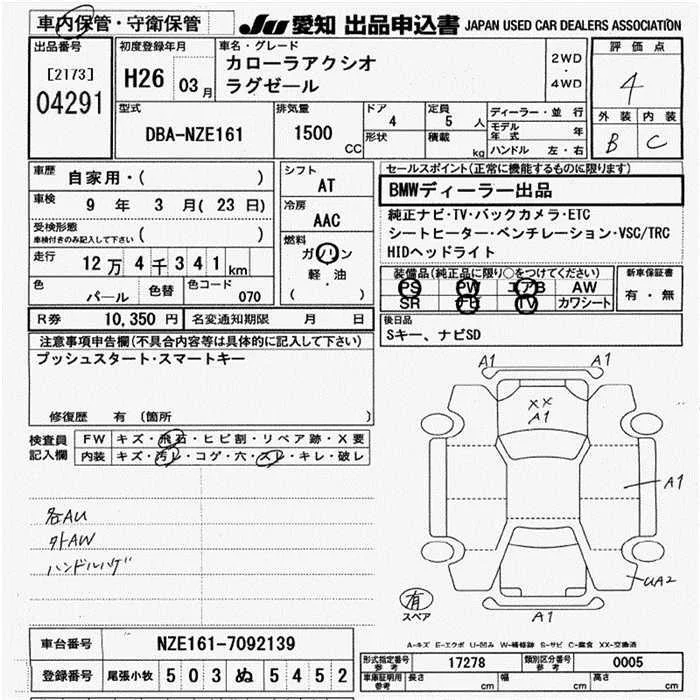 車内保管・守衛保管
JU 愛知 出品申込書 JAPAN USED CAR DEALERS ASSOCIATION
出品番号
[2173]
04291
初度登録年月
H26 03月
車名・グレード
カローラアクシオ
ラグゼール
2WD
・
4WD
評価点
4
外装 内装
B C
型式
DBA-NZE161
排気量
1500 CC
ドア
4
定員
5 人
形状
積載
kg
ディーラー・並行
モデル年式 年
ハンドル 左・右
車歴
自家用・( )
車検
9 年 3 月( 23 日)
受検形態
車検付きのみ記入して下さい ( )
走行
12万4千341km
色
パール
色替
色コード
070
シフト
AT
冷房
AAC
燃料
ガソリン
軽・油
( )
セールスポイント(正常に機能するものに限ります)
BMWディーラー出品
純正ナビ・TV・バックカメラ・ETC
シートヒーター・ベンチレーション・VSC/TRC
HIDヘッドライト
装備品(純正品に限り○をつけてください)
PS PW エアB AW
SR ナビ TV カワシート
新車保証書
有・無
R券 10,350 円
名変通知期限 月 日
後日品
Sキー、ナビSD
注意事項申告欄(不具合内容等は具体的に記入して下さい)
プッシュスタート・スマートキー
修復歴 有 (箇所 )
検査員
記入欄
FW キズ・飛石・ヒビ割・リペア跡・X要
内装 キズ・汚レ・コゲ・穴・スレ・キレ・破レ
各AU
外AW
ハンドルハゲ
A1 A1
XX
A1
A1
UA2
A1
有
スペア
A-キズ E-エクボ U-凹み W-補修跡 S-サビ C-腐食 XX-交換済
車台番号
NZE161-7092139
登録番号
尾張小牧 503 ぬ 5452
形式指定番号
参考
17278
類別区分番号
参考
0005
車庫証明用
参考
長さ cm
幅 cm
高さ cm